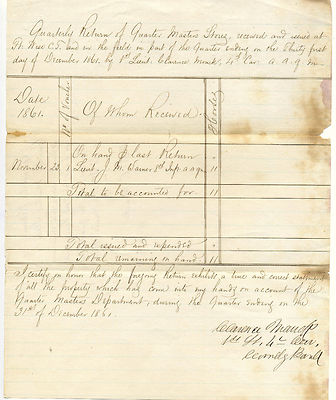 Quarterly Return of Quarter Masters Stores, received and issued at
Ft. Wise C.T. and in the field in part of the Quarter ending on the thirty first
day of December 1861. by 1st Lieut. Clarence Mauck, 4th Cav. a. a. q. m.
Date
1861.
No. of Voucher
Of Whom Received.
Cords
On hand last Return "
November 23 1 Lieut. J. M. Warner Inf. a a q m 11
Total to be accounted for 11
Total issued and expended "
Total remaining on hand 11
I certify on honor that the foregoing Return exhibits a true and correct statement
of all the property which has come into my hands on account of the
Quarter Masters Department, during the Quarter ending on the
31st of December 1861.
Clarence Mauck
1st Lt. 4th Cav.
Comdg